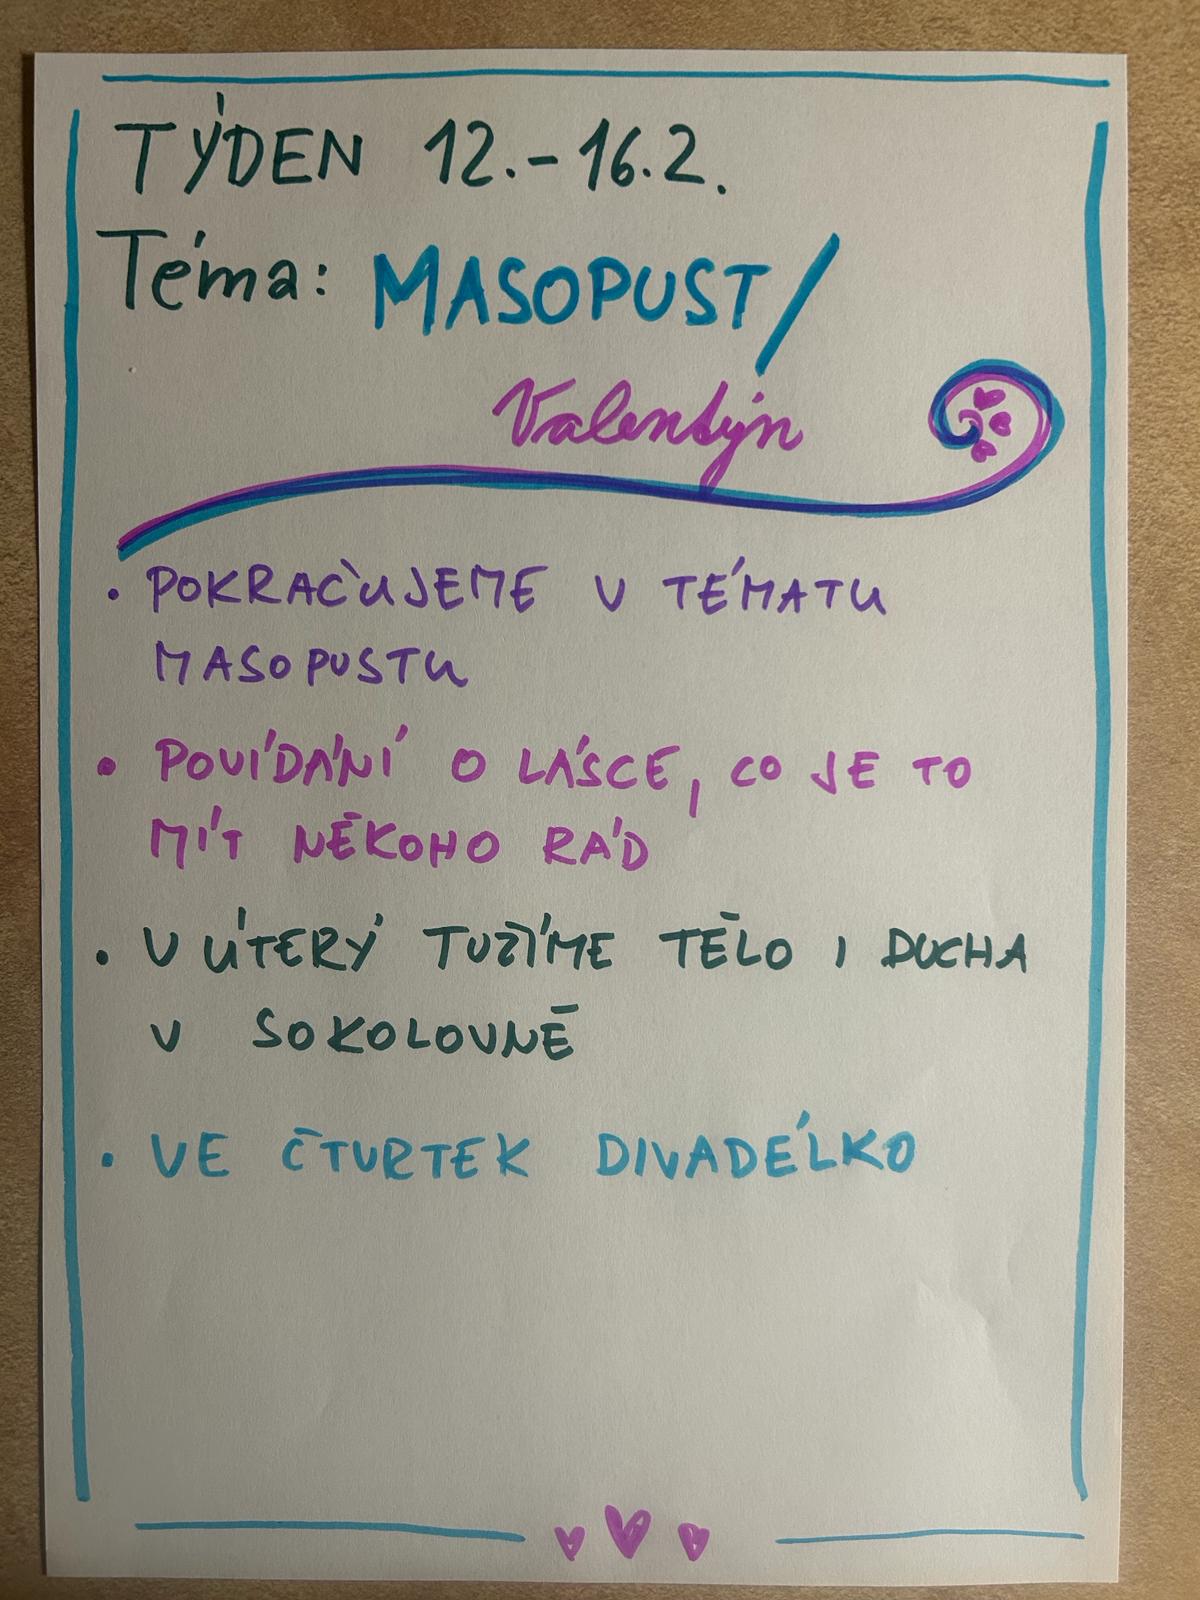 TÝDEN 12.-16.2.
Téma: MASOPUST/
Valentýn
• POKRAČUJEME V TÉMATU
MASOPUSTU
• POVÍDÁNÍ O LÁSCE, CO JE TO
MÍT NĚKOHO RÁD
• V ÚTERÝ TUŽÍME TĚLO I DUCHA
V SOKOLOVNĚ
• VE ČTVRTEK DIVADÉLKO